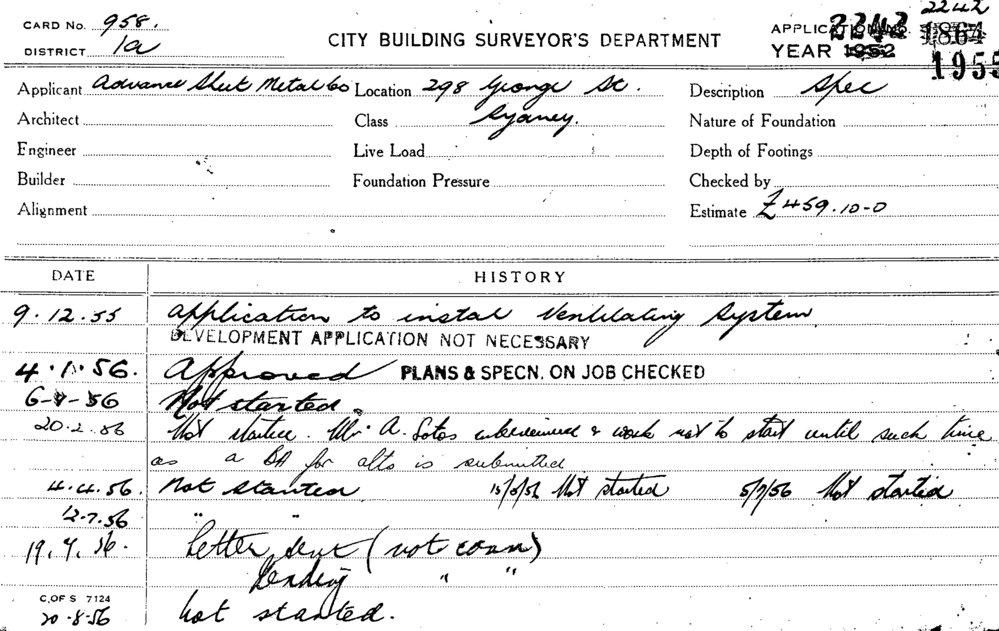 2242
CARD No. 958.
DISTRICT 1a
CITY BUILDING SURVEYOR'S DEPARTMENT
2242 1864
YEAR 1952 1955
Applicant Advance Sheet Metal Co Location 298 George St. Description Spec
Architect Class Sydney. Nature of Foundation
Engineer Live Load Depth of Footings
Builder Foundation Pressure Checked by
Alignment Estimate £459.10-0
DATE HISTORY
9.12.55 Application to instal Ventilating System
DEVELOPMENT APPLICATION NOT NECESSARY
4.1.56. Approved PLANS & SPECN. ON JOB CHECKED
Not started.
20.2.56 Not started. Mr A. Sotos interviewed & work not to start until such time
as a BA for alts is submitted
4.4.56. Not started 15/5/56 Not started 5/7/56 Not started
12.7.56 " "
Letter sent (not comm)
Pending " "
C. OF S 7124
20-8-56 Not started.